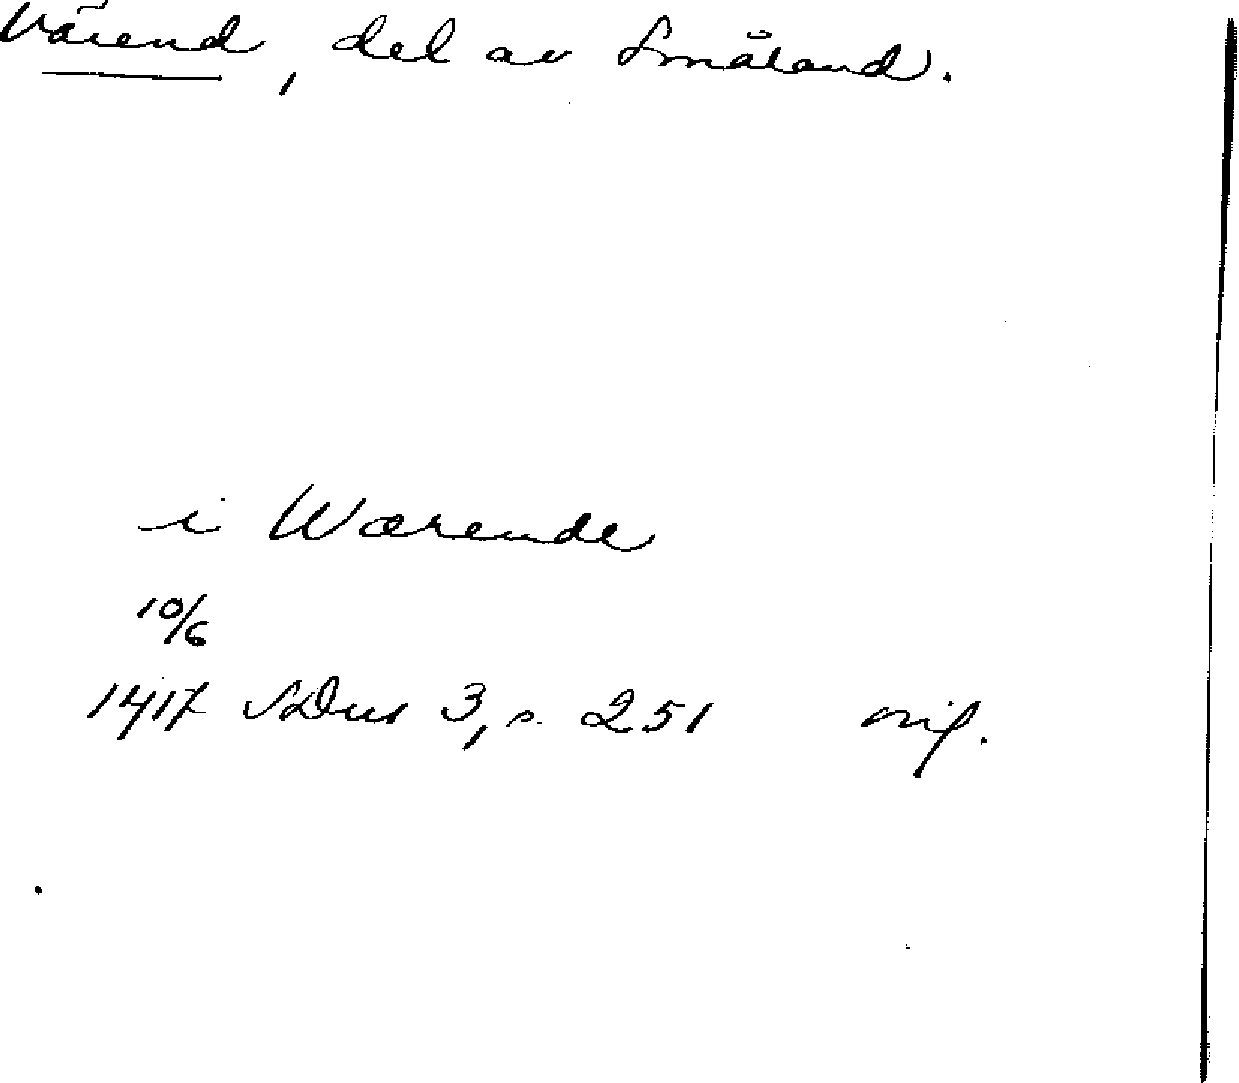 Värend, del av Småland.
i Wærende
10/6
1417 SDns 3, s. 251 orig.